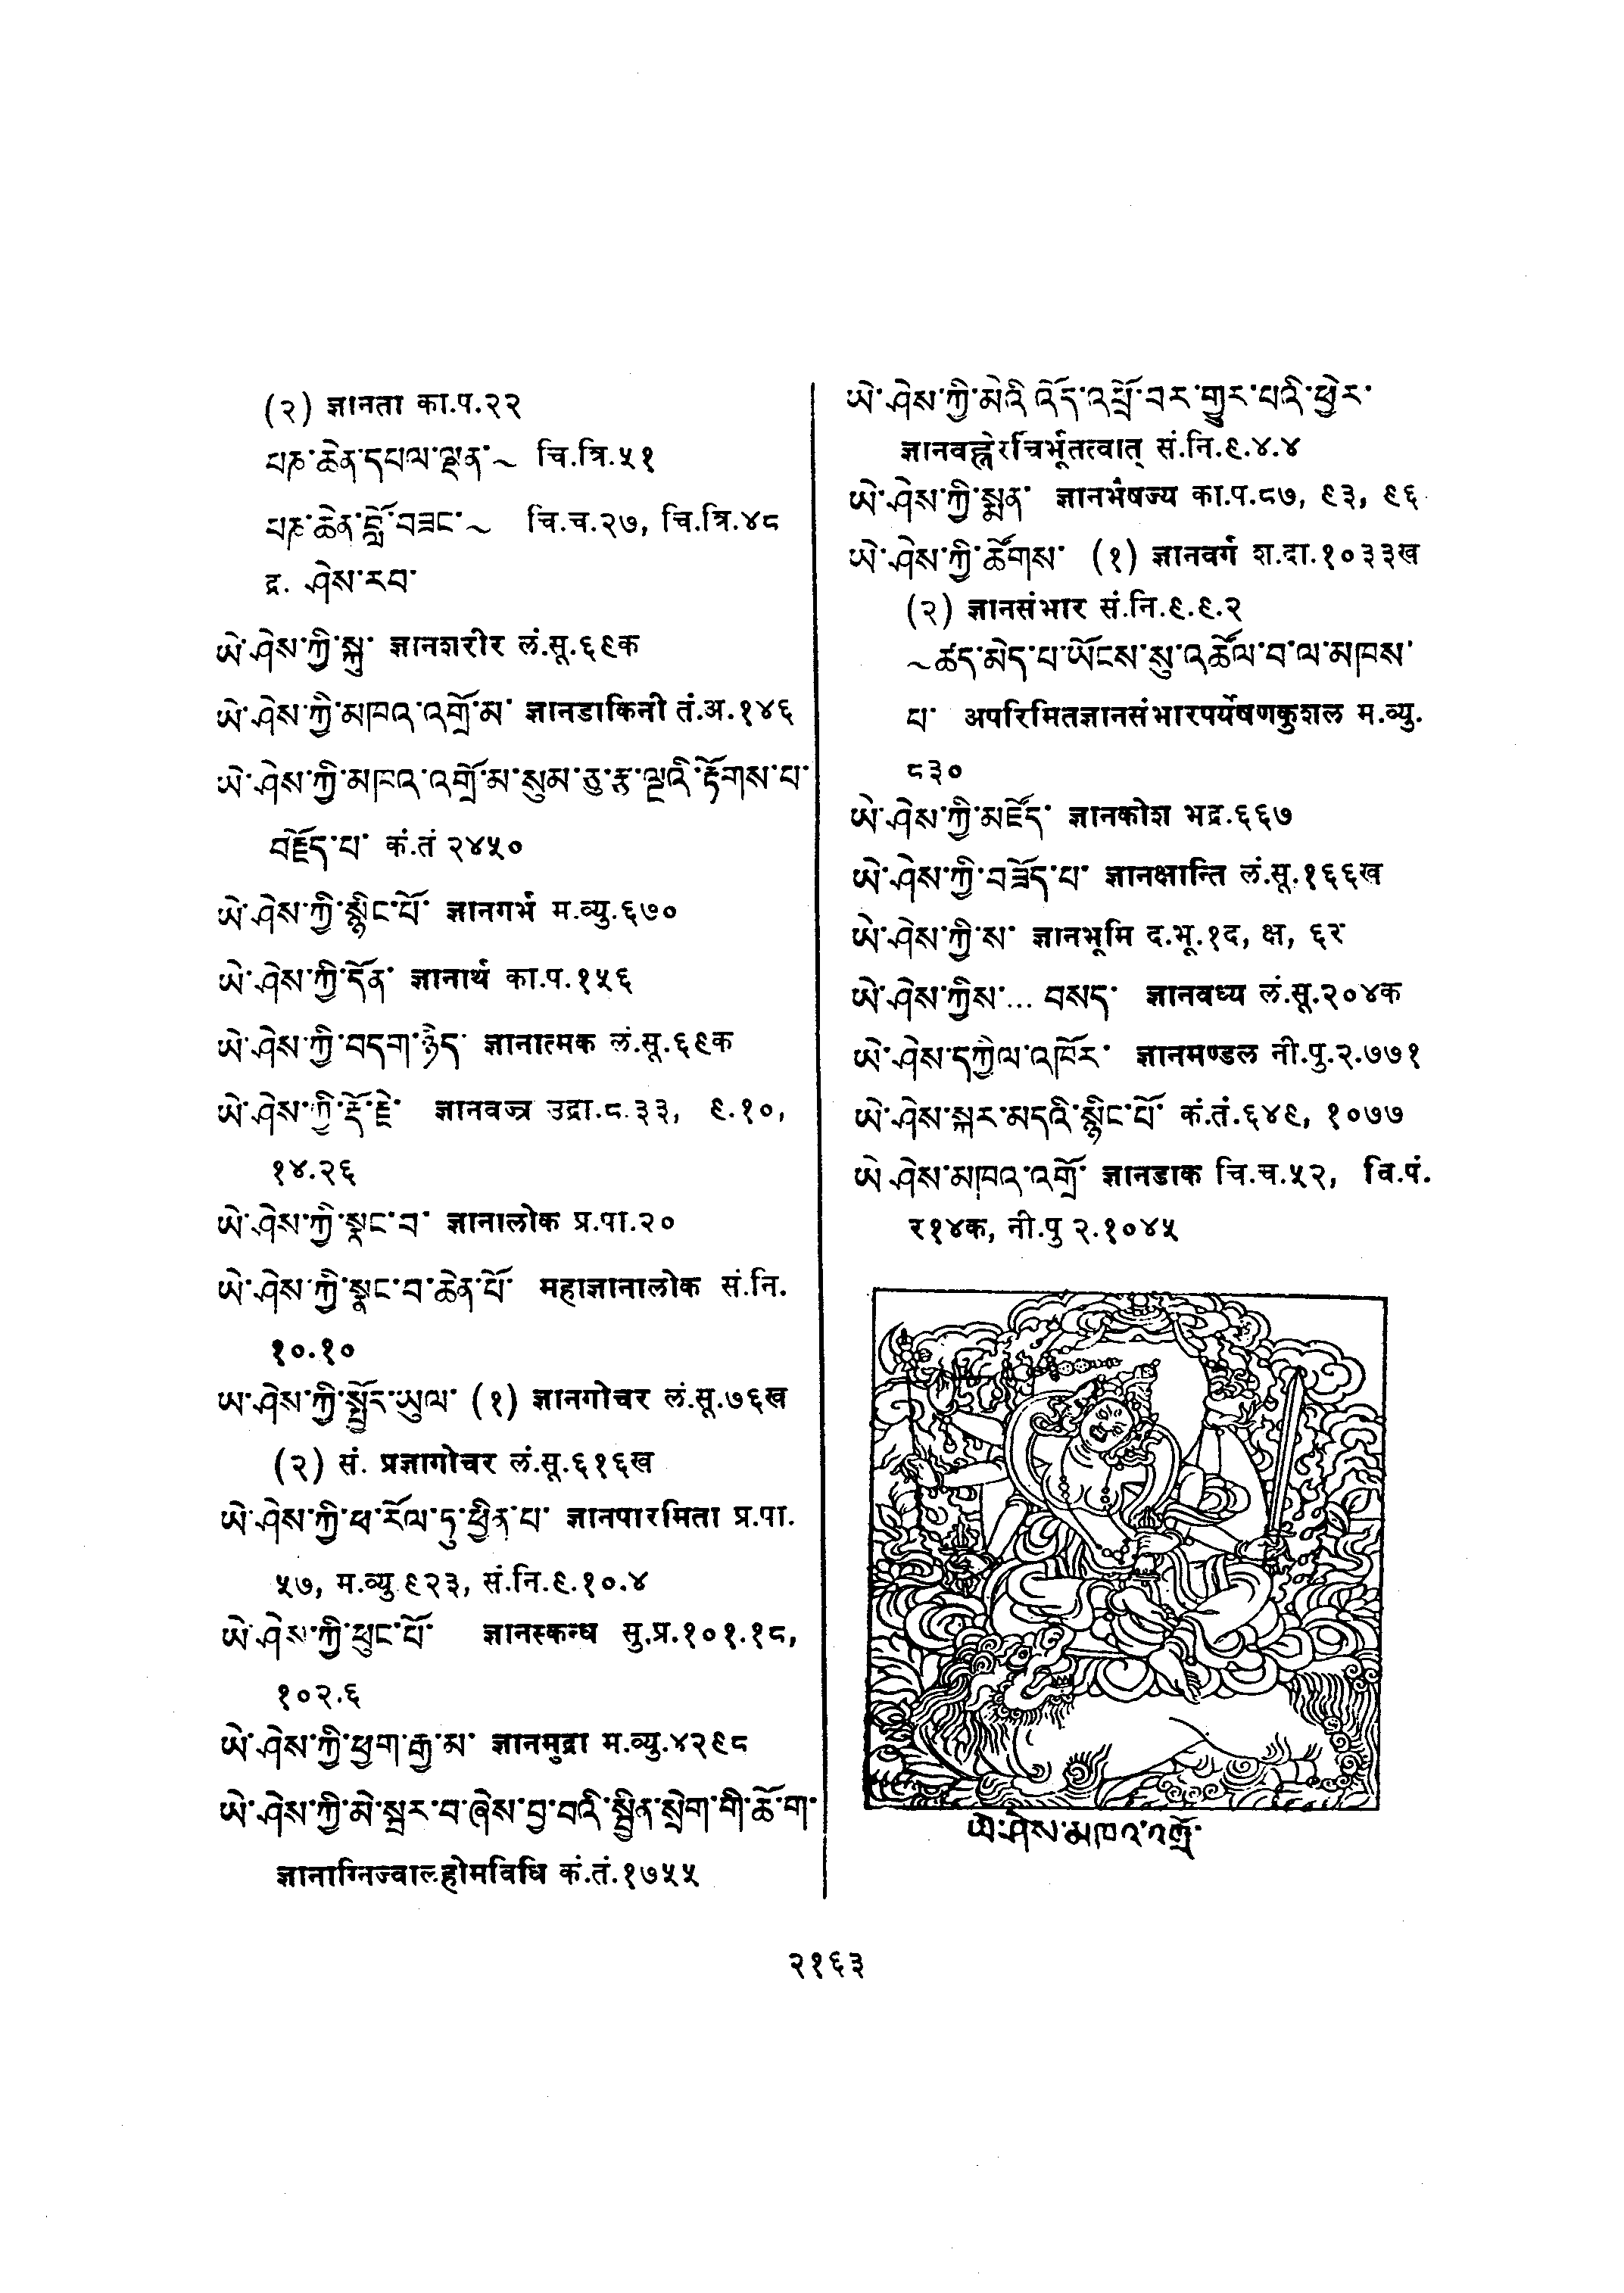 (२) ज्ञानता का.प.२२
པཎ་ཆེན་དཔལ་ལྡན་~ चि.त्रि.५१
པཎ་ཆེན་བློ་བཟང་~ चि.च.२७, चि.त्रि.४८
द्र. ཤེས་རབ་
ཡེ་ཤེས་ཀྱི་སྐུ་ ज्ञानशरीर लं.सू.६९क
ཡེ་ཤེས་ཀྱི་མཁའ་འགྲོ་མ་ ज्ञानडाकिनी तं.अ.१४६
ཡེ་ཤེས་ཀྱི་མཁའ་འགྲོ་མ་སུམ་ཅུ་རྩ་ལྔའི་རྟོགས་པ་
བརྗོད་པ་ कं.तं २४५०
ཡེ་ཤེས་ཀྱི་སྙིང་པོ་ ज्ञानगर्भ म.व्यु.६७०
ཡེ་ཤེས་ཀྱི་དོན་ ज्ञानार्थ का.प.१५६
ཡེ་ཤེས་ཀྱི་བདག་ཉིད་ ज्ञानात्मक लं.सू.६९क
ཡེ་ཤེས་ཀྱི་རྡོ་རྗེ་ ज्ञानवज्र उद्रा.८.३३, ९.१०,
१४.२६
ཡེ་ཤེས་ཀྱི་སྣང་བ་ ज्ञानालोक प्र.पा.२०
ཡེ་ཤེས་ཀྱི་སྣང་བ་ཆེན་པོ་ महाज्ञानालोक सं.नि.
१०.१०
ཡ་ཤེས་ཀྱི་སྤྱོད་ཡུལ་ (१) ज्ञानगोचर लं.सू.७६ख
(२) सं. प्रज्ञागोचर लं.सू.६१६ख
ཡེ་ཤེས་ཀྱི་ཕ་རོལ་ཏུ་ཕྱིན་པ་ ज्ञानपारमिता प्र.पा.
५७, म.व्यु.९२३, सं.नि.९.१०.४
ཡེ་ཤེས་ཀྱི་ཕུང་པོ་ ज्ञानस्कन्ध सु.प्र.१०१.१८,
१०२.६
ཡེ་ཤེས་ཀྱི་ཕྱག་རྒྱ་མ་ ज्ञानमुद्रा म.व्यु.४२९८
ཡེ་ཤེས་ཀྱི་མེ་སྦར་བ་ཞེས་བྱ་བའི་སྦྱིན་སྲེག་གི་ཆོ་ག་
ज्ञानाग्निज्वालहोमविधि कं.तं.१७५५
ཡེ་ཤེས་ཀྱི་མེའི་འོད་འཕྲོ་བར་གྱུར་པའི་ཕྱིར་
ज्ञानवह्नेरर्चिर्भूतत्वात् सं.नि.९.४.४
ཡེ་ཤེས་ཀྱི་སྨན་ ज्ञानभैषज्य का.प.८७, ९३, ९६
ཡེ་ཤེས་ཀྱི་ཚོགས་ (१) ज्ञानवर्ग श.दा.१०३३ख
(२) ज्ञानसंभार सं.नि.९.९.२
~ཚད་མེད་པ་ཡོངས་སུ་འཚོལ་བ་ལ་མཁས་
པ་ अपरिमितज्ञानसंभारपर्येषणकुशल म.व्यु.
८३०
ཡེ་ཤེས་ཀྱི་མཛོད་ ज्ञानकोश भद्र.६६७
ཡེ་ཤེས་ཀྱི་བཟོད་པ་ ज्ञानक्षान्ति लं.सू.१६६ख
ཡེ་ཤེས་ཀྱི་ས་ ज्ञानभूमि द.भू.१द, क्ष, ६र
ཡེ་ཤེས་ཀྱིས་... བསད་ ज्ञानवध्य लं.सू.२०४क
ཡེ་ཤེས་དཀྱིལ་འཁོར་ ज्ञानमण्डल नी.पु.२.७७१
ཡེ་ཤེས་སྐར་མདའི་སྙིང་པོ་ कं.तं.६४९, १०७७
ཡེ་ཤེས་མཁའ་འགྲོ་ ज्ञानडाक चि.च.५२, वि.पं.
र१४क, नी.पु २.१०४५
ཡེ་ཤེས་མཁའ་འགྲོ་
२१६३